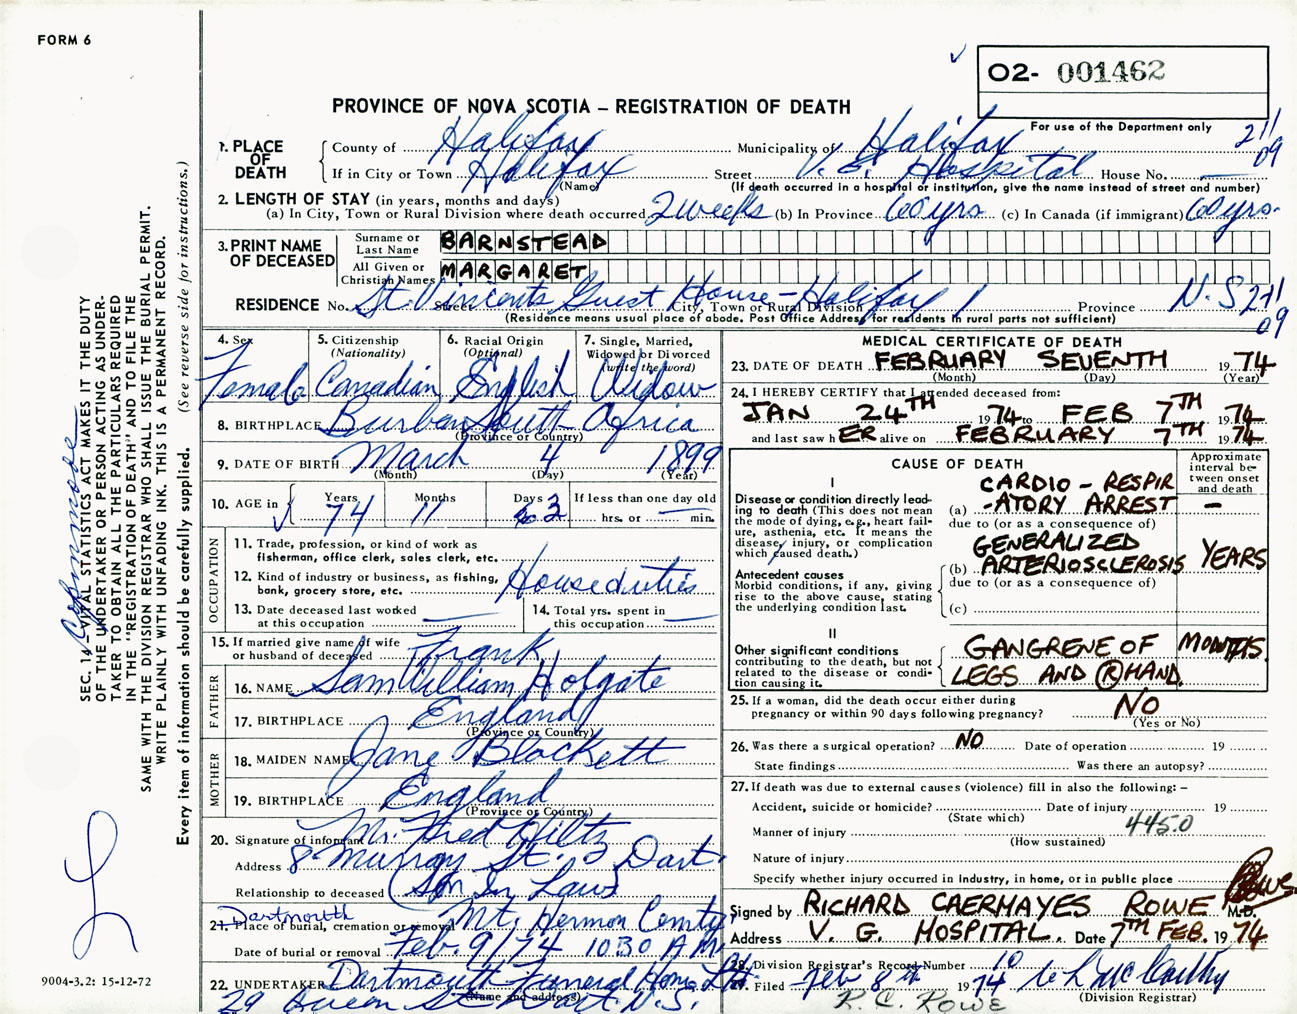 FORM 6
02- 001462
PROVINCE OF NOVA SCOTIA – REGISTRATION OF DEATH
For use of the Department only
211
09
1. PLACE OF DEATH
County of Halifax Municipality of Halifax
If in City or Town Halifax Street V. G. Hospital House No. —
(Name) (If death occurred in a hospital or institution, give the name instead of street and number)
2. LENGTH OF STAY (in years, months and days)
(a) In City, Town or Rural Division where death occurred 2 weeks (b) In Province 60 yrs (c) In Canada (if immigrant) 60 yrs.
3. PRINT NAME OF DECEASED
Surname or Last Name BARNSTEAD
All Given or Christian Names MARGARET
RESIDENCE No. Street St. Vincents Guest House – Halifax City, Town or Rural Division Province N.S 211
09
(Residence means usual place of abode. Post Office Address for residents in rural parts not sufficient)
4. Sex Female
5. Citizenship (Nationality) Canadian
6. Racial Origin (Optional) English
7. Single, Married, Widowed or Divorced (write the word) Widow
8. BIRTHPLACE Burban South Africa
(Province or Country)
9. DATE OF BIRTH March 4 1899
(Month) (Day) (Year)
10. AGE in Years 74 Months 11 Days 3 If less than one day old
hrs. or min.
OCCUPATION
11. Trade, profession, or kind of work as fisherman, office clerk, sales clerk, etc.
12. Kind of industry or business, as fishing, bank, grocery store, etc. House duties
13. Date deceased last worked at this occupation —
14. Total yrs. spent in this occupation —
15. If married give name of wife or husband of deceased Frank
FATHER
16. NAME Sam William Holgate
17. BIRTHPLACE England
(Province or Country)
MOTHER
18. MAIDEN NAME Jane Blackett
19. BIRTHPLACE England
(Province or Country)
20. Signature of informant Mr. Fred Hiltz
Address 8 Murray St. Dart.
Relationship to deceased (Son In Law)
Dartmouth
21. Place of burial, cremation or removal Mt. Hermon Cemty
Date of burial or removal Feb. 9/74 10 30 A.M.
22. UNDERTAKER Dartmouth Funeral Home Ltd.
(Name and address)
29 Queen St. Dart. N.S.
MEDICAL CERTIFICATE OF DEATH
23. DATE OF DEATH FEBRUARY SEVENTH 1974
(Month) (Day) (Year)
24. I HEREBY CERTIFY that I attended deceased from:
JAN 24TH 1974 to FEB 7TH 1974
and last saw hER alive on FEBRUARY 7TH 1974
CAUSE OF DEATH
Approximate interval between onset and death
I
Disease or condition directly leading to death (This does not mean the mode of dying, e.g., heart failure, asthenia, etc. It means the disease, injury, or complication which caused death.)
CARDIO - RESPIR
(a) -ATORY ARREST –
due to (or as a consequence of)
GENERALIZED
(b) ARTERIOSCLEROSIS YEARS
due to (or as a consequence of)
Antecedent causes
Morbid conditions, if any, giving rise to the above cause, stating the underlying condition last.
(c)
II
Other significant conditions
contributing to the death, but not related to the disease or condition causing it.
GANGRENE OF MONTHS.
LEGS AND R HAND.
25. If a woman, did the death occur either during pregnancy or within 90 days following pregnancy? NO
(Yes or No)
26. Was there a surgical operation? NO Date of operation 19
State findings Was there an autopsy?
27. If death was due to external causes (violence) fill in also the following: –
Accident, suicide or homicide? Date of injury 19
(State which)
4450
Manner of injury
(How sustained)
Nature of injury
Specify whether injury occurred in industry, in home, or in public place
Signed by RICHARD CAERMAYES ROWE M.D.
Address V. G. HOSPITAL. Date 7TH FEB. 1974
28. Division Registrar's Record Number 10
29. Filed Feb 8th 1974
(Division Registrar)
R. C. ROWE
SEC. 14 – VITAL STATISTICS ACT MAKES IT THE DUTY
OF THE UNDERTAKER OR PERSON ACTING AS UNDER-
TAKER TO OBTAIN ALL THE PARTICULARS REQUIRED
IN THE "REGISTRATION OF DEATH" AND TO FILE THE
SAME WITH THE DIVISION REGISTRAR WHO SHALL ISSUE THE BURIAL PERMIT.
WRITE PLAINLY WITH UNFADING INK. THIS IS A PERMANENT RECORD.
Every item of information should be carefully supplied. (See reverse side for instructions.)
9004-3.2: 15-12-72